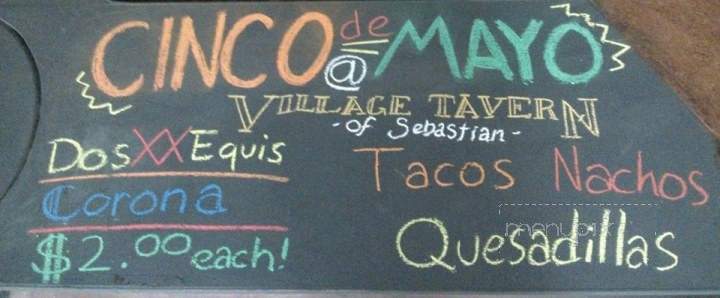 CINCO de MAYO
@
VILLAGE TAVERN
- of Sebastian -
Dos XX Equis
Corona
$2.00 each!
Tacos Nachos
Quesadillas
menupix